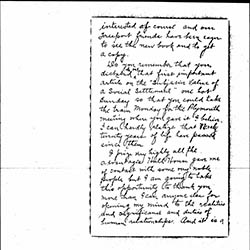 interested of council and our
Freeport friends have been eager
to see the new book and to get
a copy.
Do you remember that you
dictated that first important
article on the "Subjective Value of
a Social Settlement" one hot
Sunday so that you could take
the train Monday for the Plymouth
meeting where you gave it? I believe.
I can hardly realize that
twenty years of life have passed
since then.
I prize very highly all the
advantages Hull House gave me
of contact with some very noble
people but I am going to take
this opportunity to thank you
more than I can anyone else for
opening my mind to the realities
and significance and duties of
human relationships. And it is a